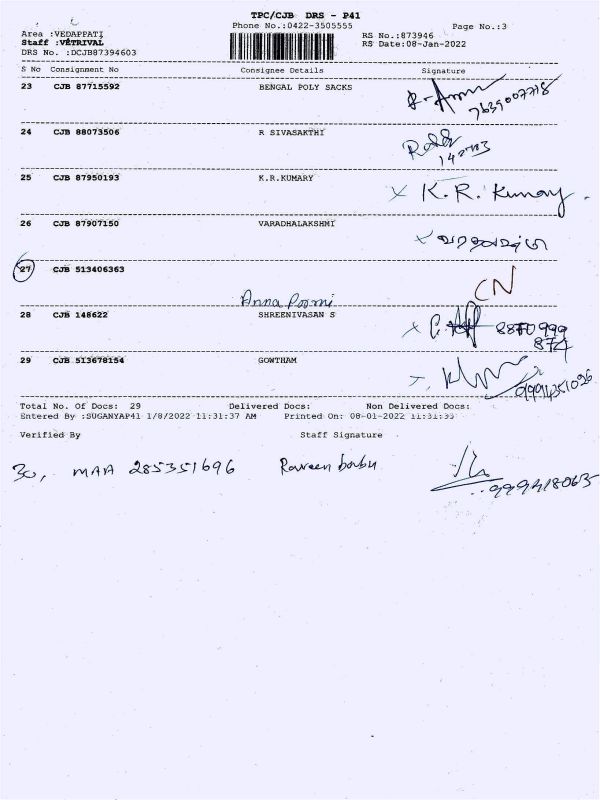 TPC/CJB DRS - P41
Phone No.:0422-3505555 Page No.:3
Area :VEDAPPATI RS No.:873946
Staff :VETRIVAL RS Date:08-Jan-2022
DRS No. :DCJB87394603
S No Consignment No Consignee Details Signature
23 CJB 87715592 BENGAL POLY SACKS
7639007718
24 CJB 88073506 R SIVASAKTHI
25 CJB 87950193 K.R.KUMARY K.R. Kumary.
26 CJB 87907150 VARADHALAKSHMI
27 CJB 513406363
CN
Anna Poorni
28 CJB 148622 SHREENIVASAN S
8870999
874
29 CJB 513678154 GOWTHAM
9994351096
Total No. Of Docs: 29 Delivered Docs: Non Delivered Docs:
Entered By :SUGANYAP41 1/8/2022 11:31:37 AM Printed On: 08-01-2022 11:31:39
Verified By Staff Signature
30, MAA 285351696 Raveen babu